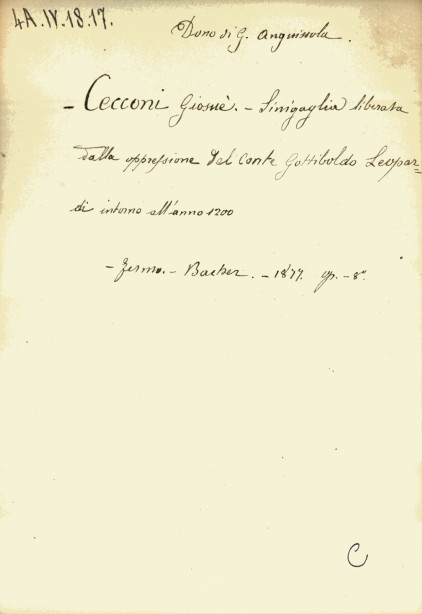 4A.IV.18.17.
Dono di G. Anguissola.
- Cecconi Giosuè. - Sinigaglia liberata
dalla oppressione del Conte Gottiboldo Leopar=
di intorno all'anno 1200
- Fermo. - Bacher. - 1877. gr. - 8º.
C